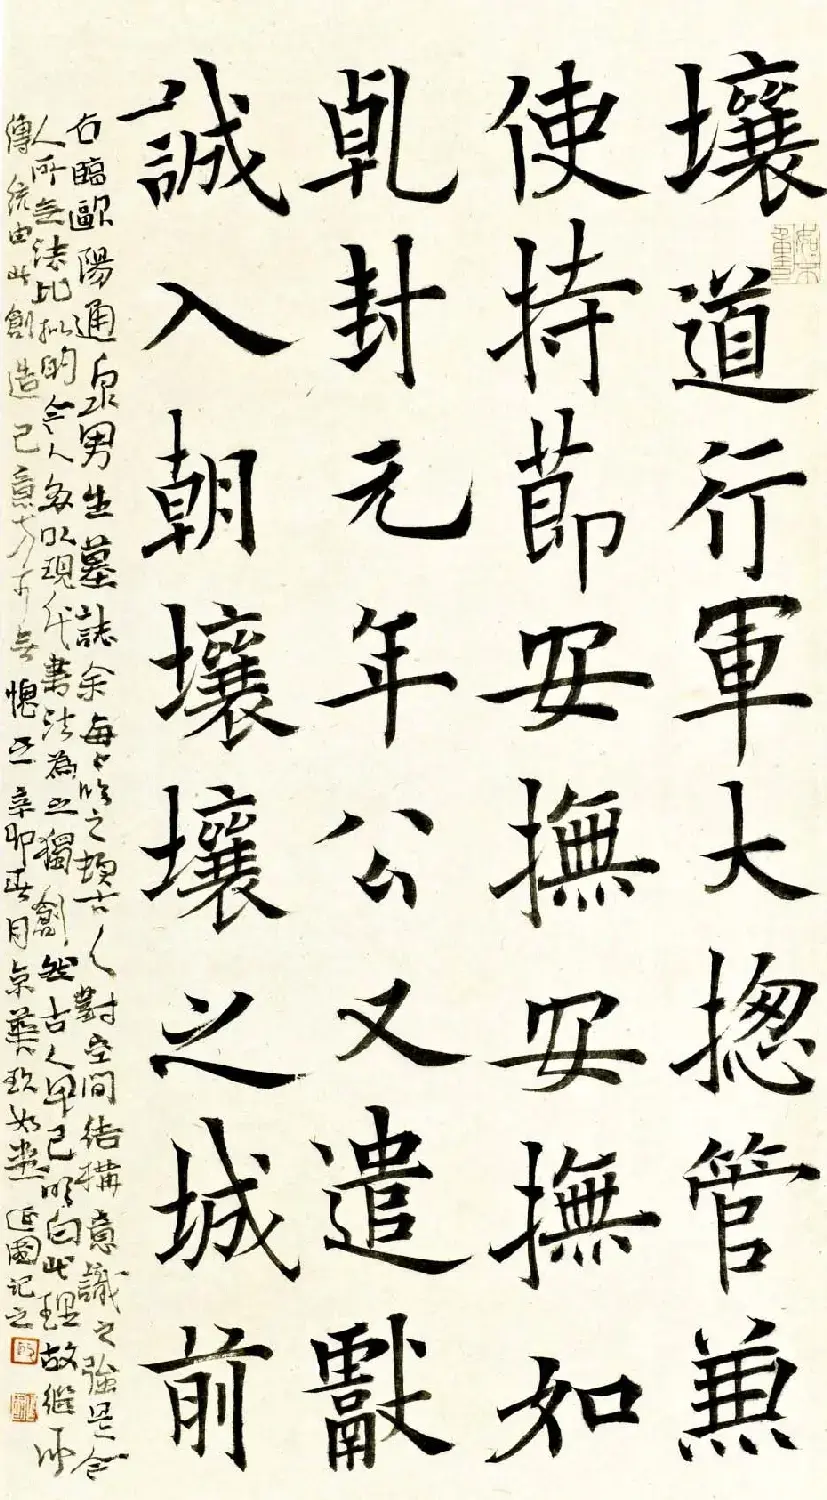 壤道行軍大揔管兼
使持節安撫安撫如
乹封元年公又遣獻
誠入朝壤壤之城前
右臨歐陽通泉男生墓誌余每々臨之嘆古人對空間結構意識之強是今
人所無法比擬的今人每以現代書法為之獨創然古人早已明白此理故繼承
傳統由此創造己意方可無愧 辛卯正月京華玖如堂延國記之